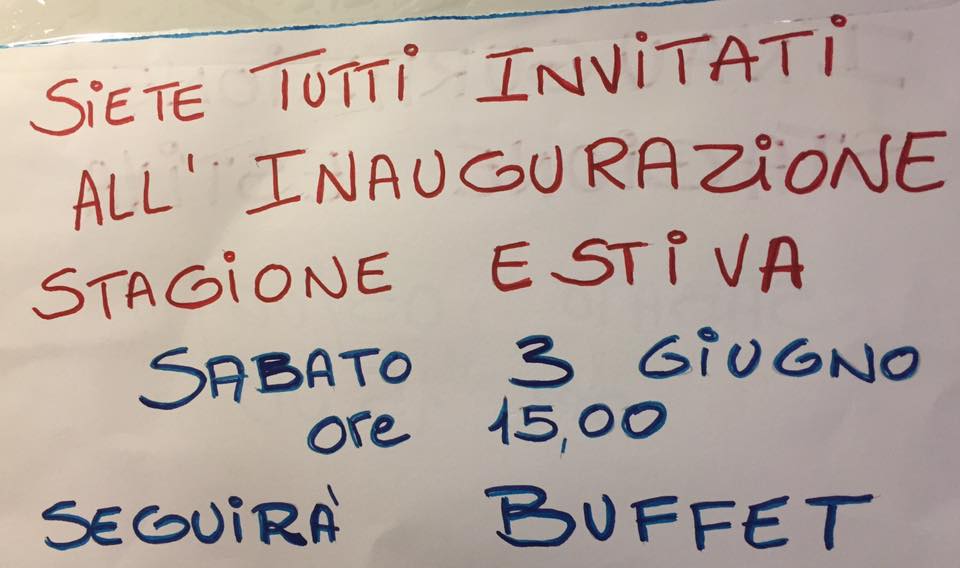 SiETE TUTTi INViTATi
ALL' INAUGURAZiONE
STAGiONE ESTiVA
SABATO 3 GiUGNO
ore 15,00
SEGUiRÀ BUFFET